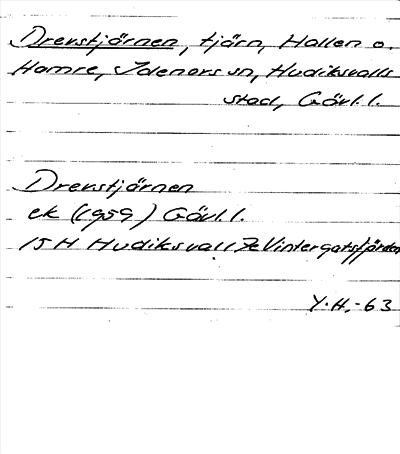 Drevstjärnen, tjärn, Hallen o.
Hamre, Idenors sn, Hudiksvalls
stad, Gävl. l.
Drevstjärnen
ek (1959) Gävl. l.
15 H Hudiksvall 7e Vintergatsfjärden
Y. H. -63